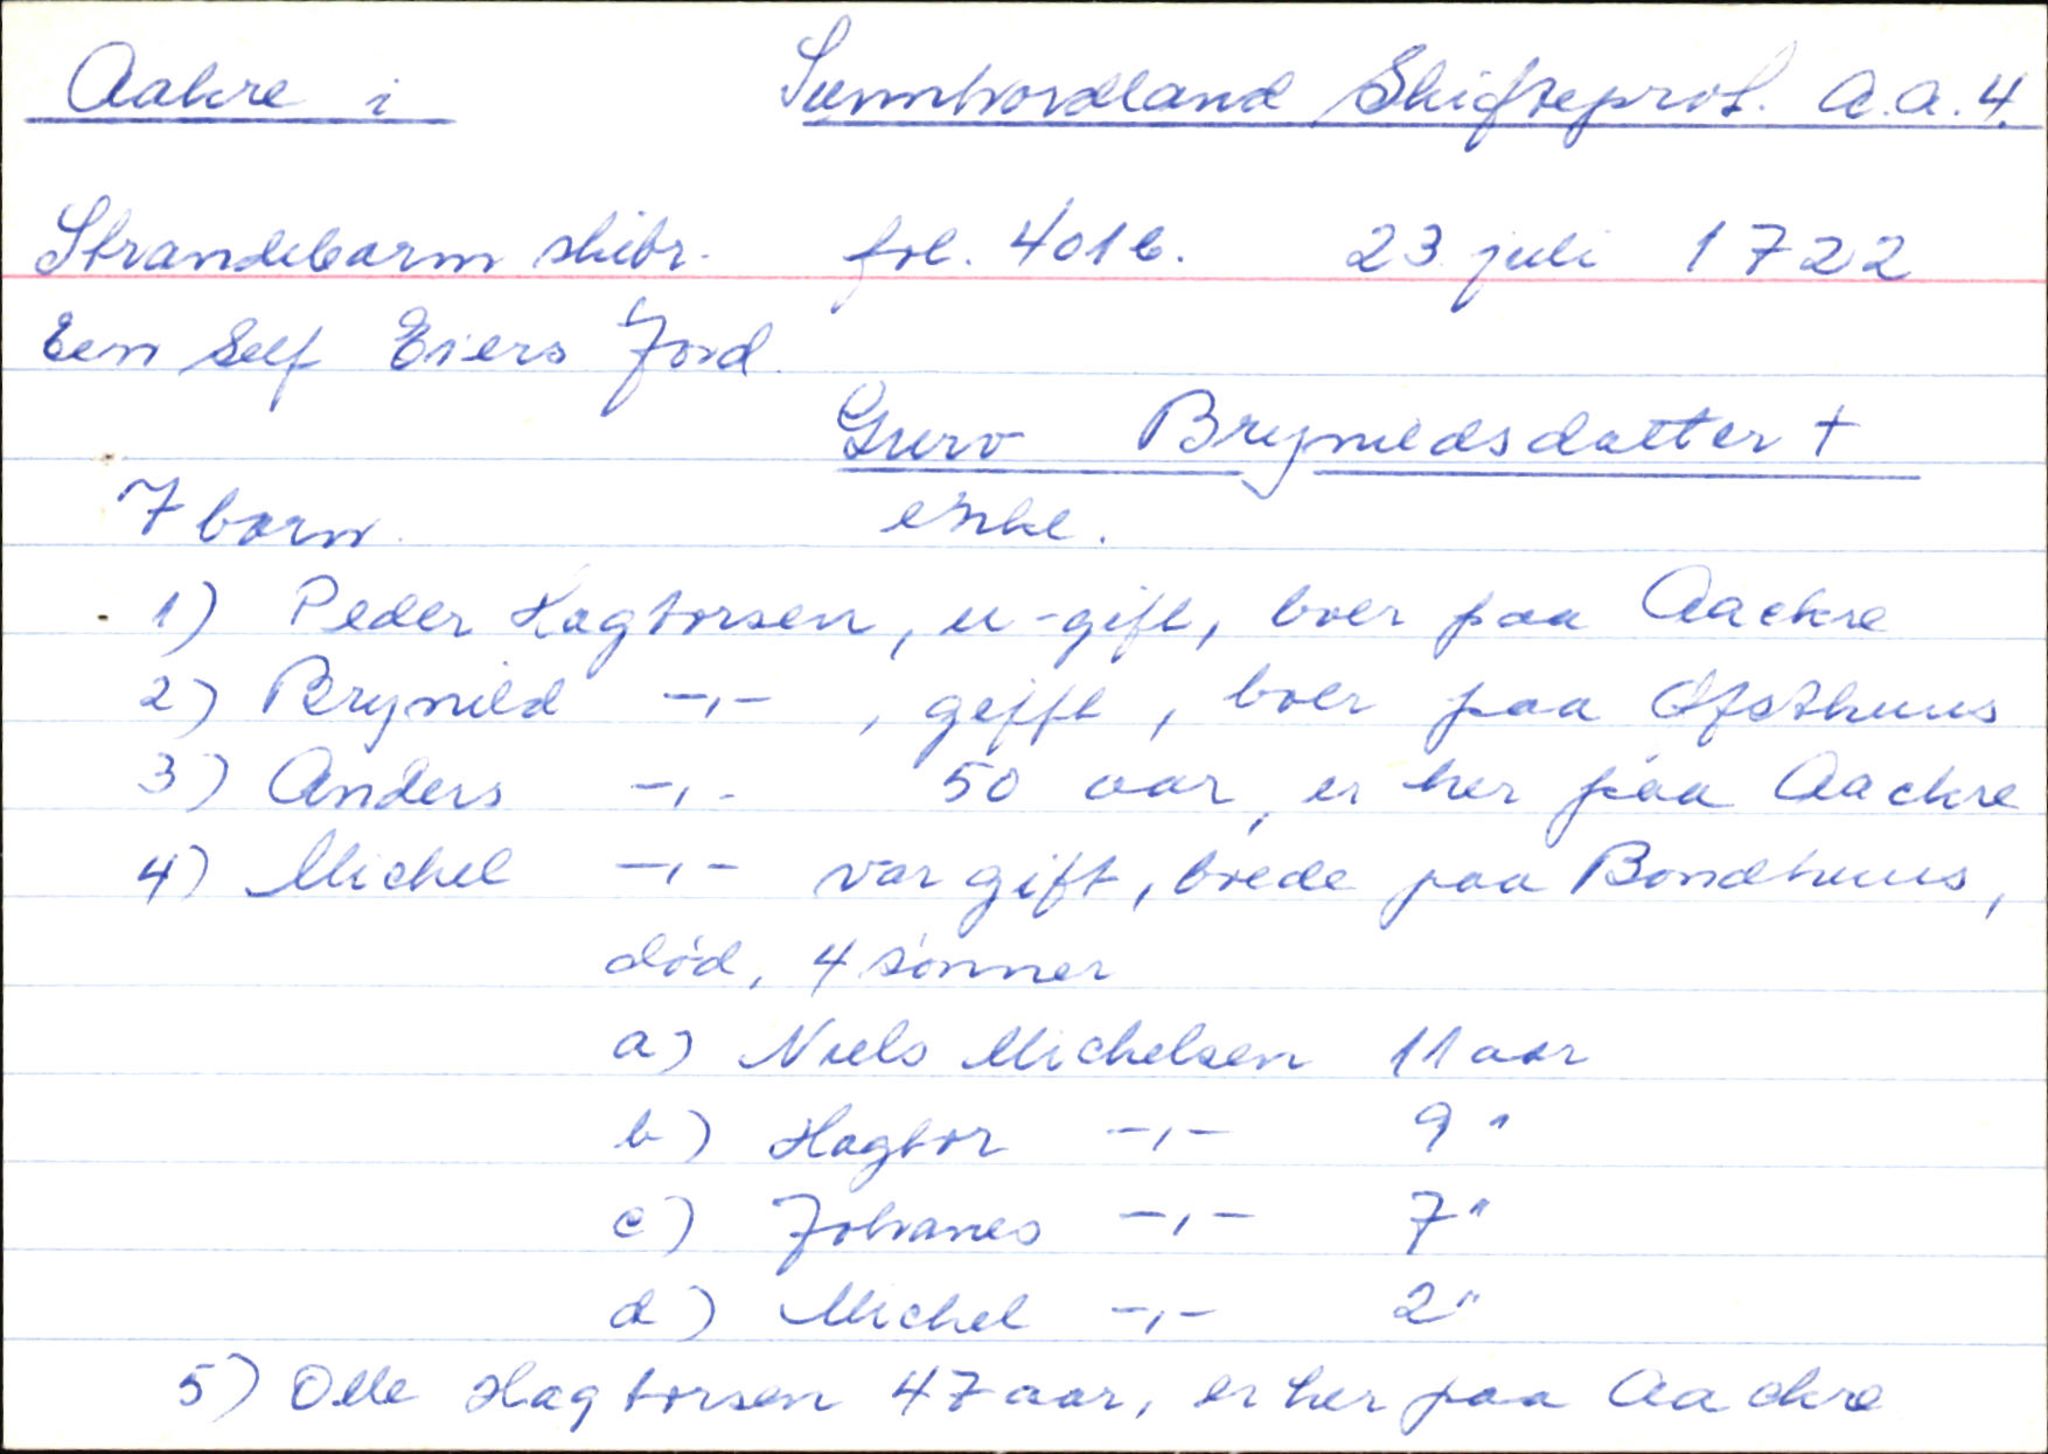 Aakre i Sunnhordland Skifteprot. A.a.4.
Strandebarm skibr. fol. 401b. 23 juli 1722
Een Self Eiers Jord.
Guro Brynildsdatter +
7 born. enke.
1) Peder Hagtorsen, u-gift, boer paa Aackre
2) Brynild -,- , gifft, boer paa Ofsthuus
3) Anders -,- 50 aar, er her paa Aackre
4) Michel -,- var gift, boede paa Bondhuus,
död, 4 sönner
a) Niels Michelsen 11 aar
b) Hagtor -,- 9 "
c) Johanes -,- 7 "
d) Michel -,- 2 "
5) Olle Hagtorsen 47 aar, er her paa Aackre